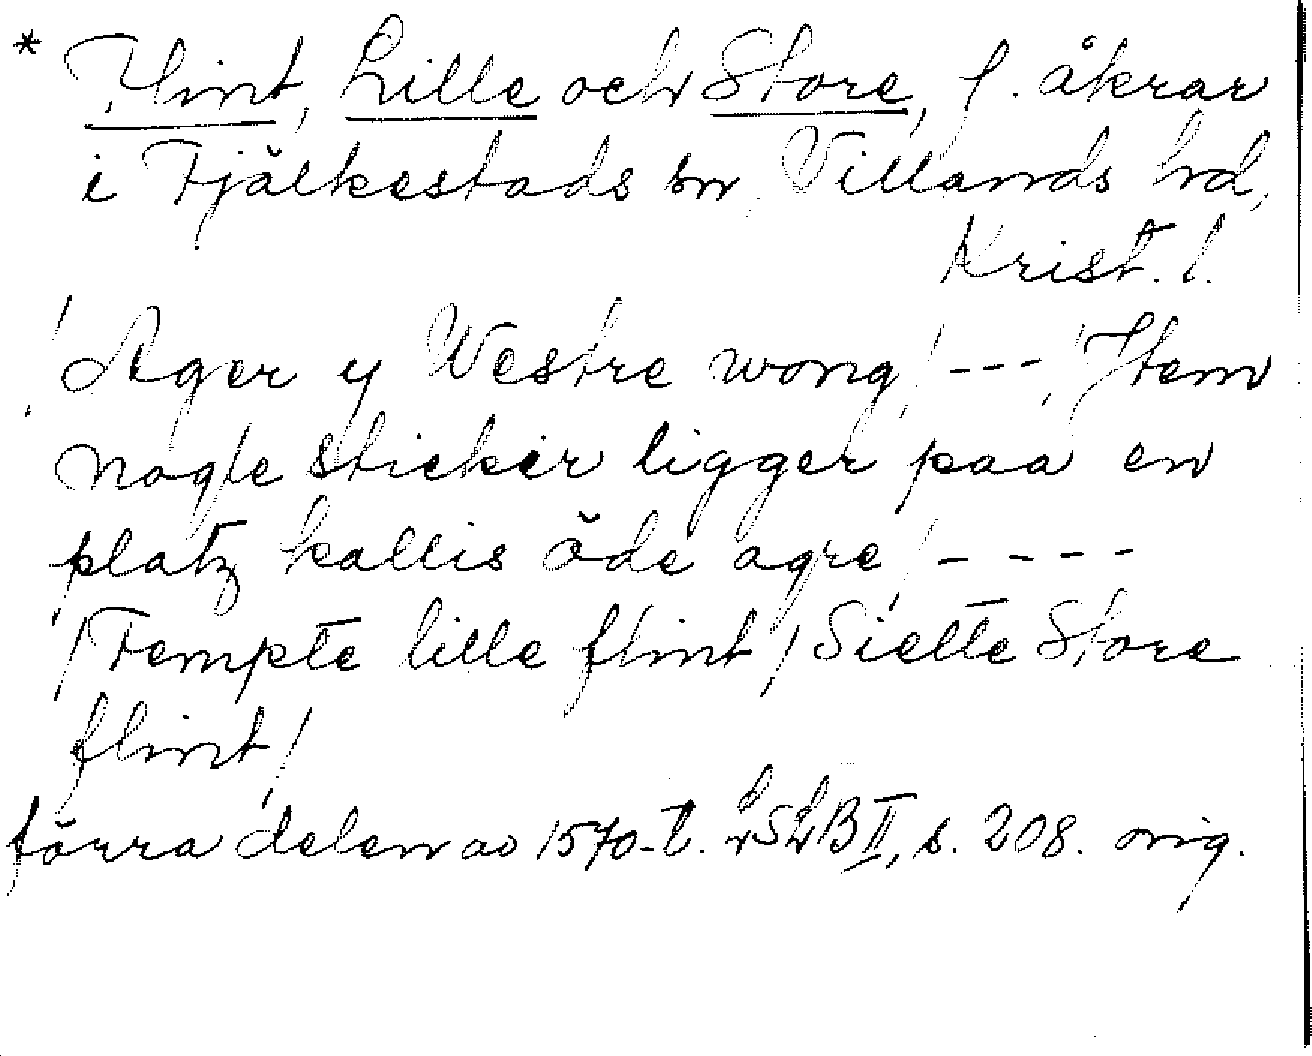 * Flint, Lille och Store, f. åkrar
i Fjälkestads sn, Villands hd,
Krist. l.
/Ager y Westre wong/ --- /Item
nogle sticker ligger paa en
platz kallis öde agre/ ----
/Fempte lille flint/ Siette Store
flint/
förra delen av 1570-t. LSLB II, s. 208. orig.